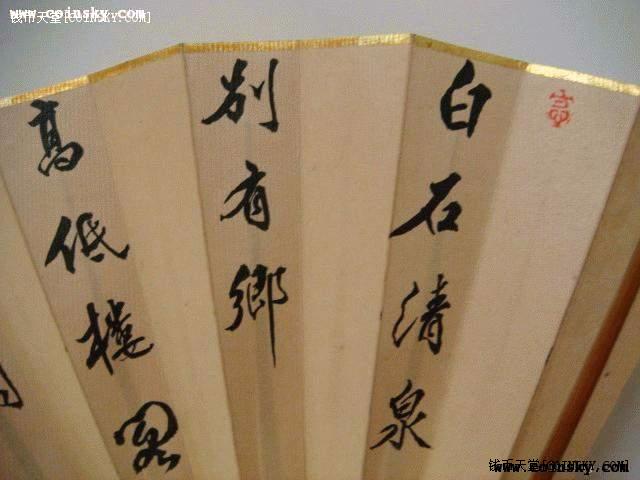 www.coinsky.com
钱币天堂[COINSKY.COM]
白石清泉
別有鄉
高低樓
钱币天堂[COINSKY.COM]
www.coinsky.com